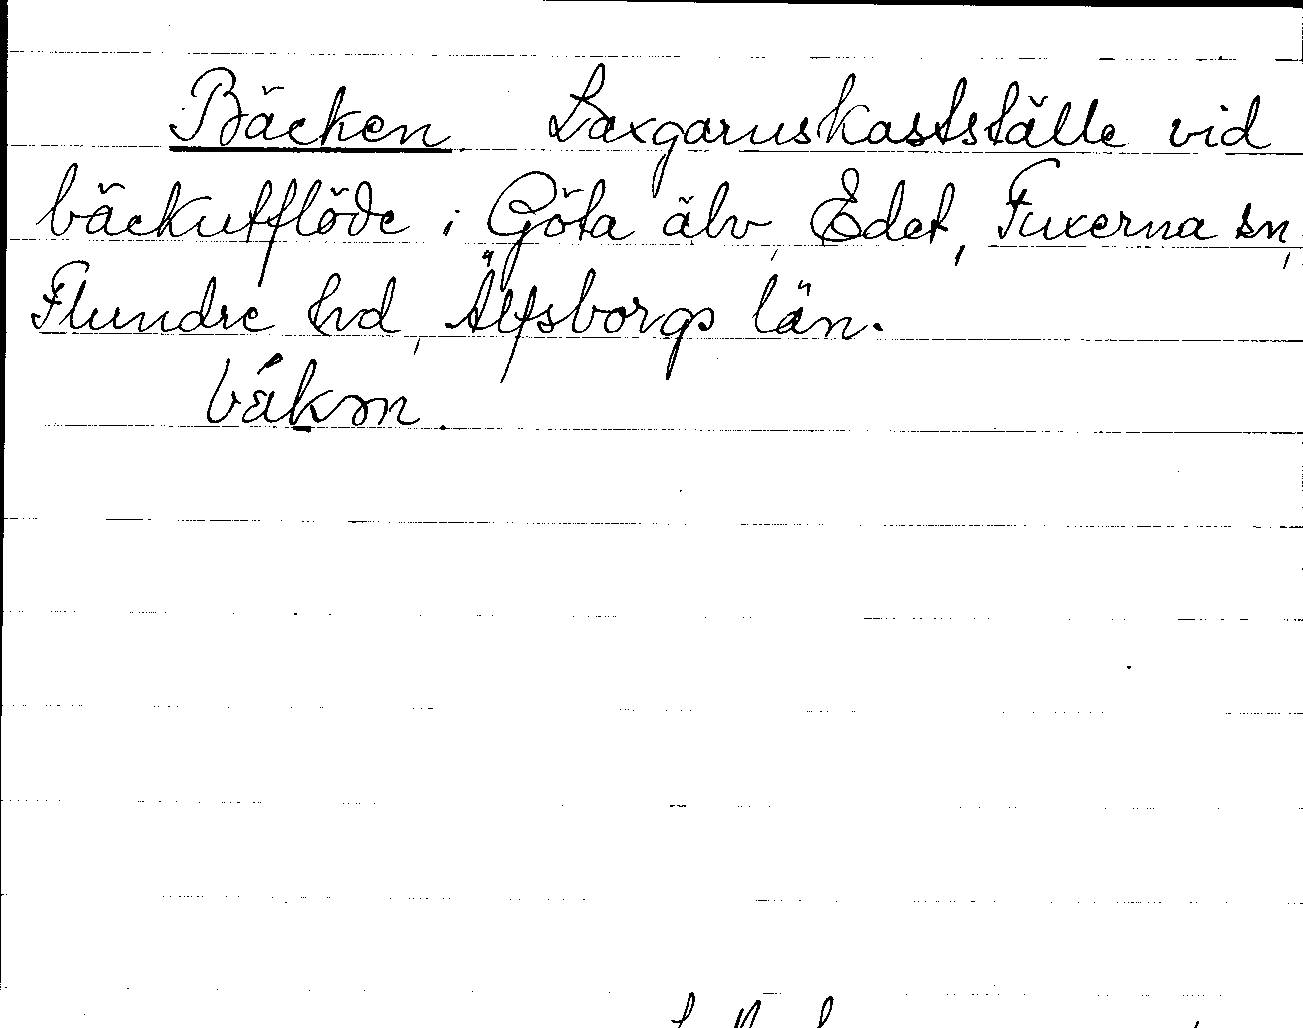 Bäcken. Laxgarnskastställe vid
bäckutflöde i Göta älv, Edet, Fuxerna sn,
Flundre hd, Älfsborgs län.
bákm.